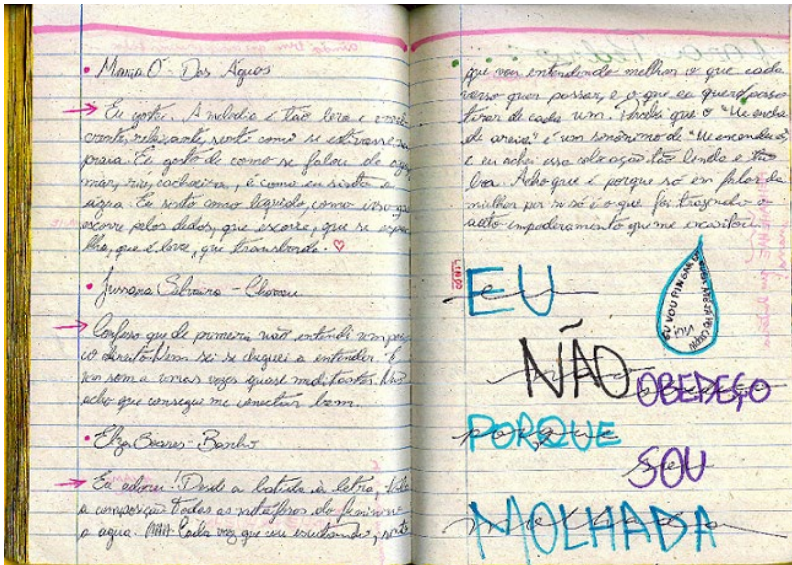 • Maria Ó - Das Águas
→ Eu gostei. A melodia é tão leve e
relaxante, senti como se estivesse na
praia. Eu gosto de como se falou de água,
mar, rio, cachoeira, é como eu sinto a
água. Eu sinto como líquido, como isso que
escorre pelos dedos, que escorre, que se espa
lha, que é leve, que transborda. ♡
• Jussara Silveira - Choveu
→ Confesso que de primeira não entendi
direito. Nem sei se cheguei a entender. É
um som e umas vozes quase meditantes. Não
acho que consegui me conectar bem.
• Elza Soares - Banho
→ Eu adorei! Desde a batida à letra, toda
a composição. Todas as metáforas do feminino
a água. Cada vez que vou escutando, sinto
que vou entendendo melhor o que cada
verso quer passar, e o que eu quero/posso
tirar de cada um. Percebi que o "Me encho
de areia" é um sinônimo de
e eu achei essa colocação tão linda e tão
boa. Acho que é porque só em falar da
mulher por si só é o que foi trazendo o
auto impoderamento que me
LINDO
EU
EU VOU PINGAR EM
NÃO
OBEDEÇO
PORQUE
SOU
MOLHADA